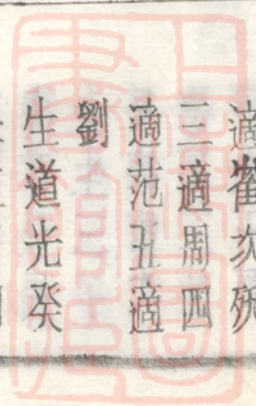 適崔次殀
三適周四
適范丑適
劉
生道光癸